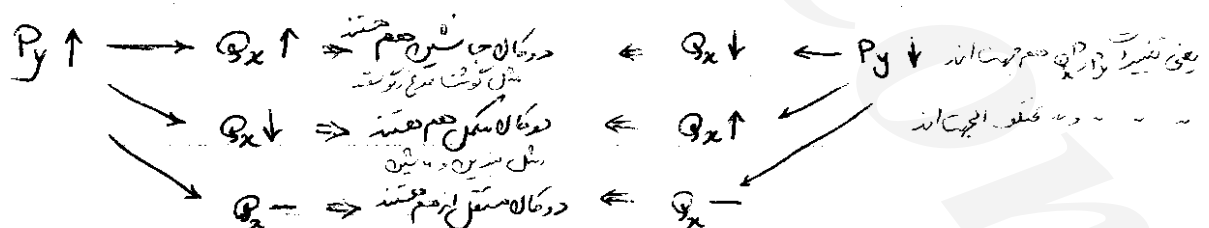 Py ↑ → Qx ↑ ⇒ دو کالا جانشین هم هستند ⇐ Qx ↓ ← Py ↓ یعنی تغییرات هم جهت اند
مثل گوشت مرغ و گوسفند
Qx ↓ ⇒ دو کالا مکمل هم هستند ⇐ Qx ↑ " " " " مختلف الجهت اند
مثل بنزین و ماشین
Qx — ⇒ دو کالا مستقل از هم هستند ⇐ Qx —